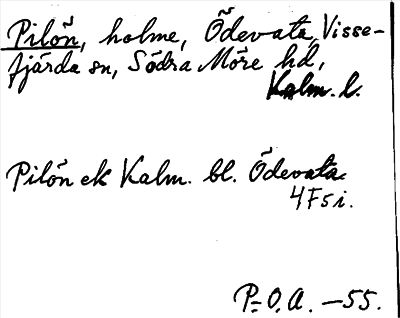 Pilön, holme, Ödevata, Visse-
fjärda sn, Södra Möre hd,
Kalm. l.
Pilön ek Kalm. bl. Ödevata
4F5i.
P=O.A. —55.